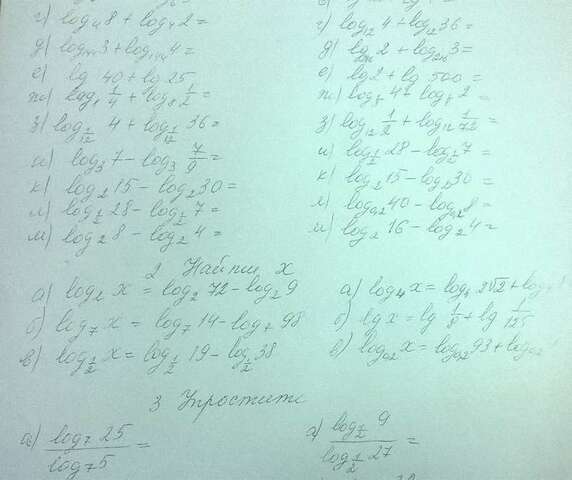 г) log₄8 + log₄2 =
д) log₁₄₄3 + log₁₄₄4 =
е) lg 40 + lg 25
ж) log₈ 1/4 + log₈ 1/2 =
з) log_{1/12} 4 + log_{1/12} 36 =
и) log₃7 − log₃ 7/9 =
к) log₂15 − log₂30 =
л) log_{1/2} 28 − log_{1/2} 7 =
м) log₂8 − log₂4 =
г) log₁₂4 + log₁₂36 =
д) log₂₁₆2 + log₂₁₆3 =
е) lg2 + lg 500 =
ж) log₈4 + log₈2 =
з) log₁₂ 1/2 + log₁₂ 1/72 =
и) log_{1/2} 28 − log_{1/2} 7 =
к) log₂15 − log₂30 =
л) log₀,₂40 − log₀,₂8 =
м) log₂16 − log₂4 =
2 Найти x
а) log₂x = log₂72 − log₂9
б) log₇x = log₇14 − log₇98
в) log_{1/2} x = log_{1/2} 19 − log_{1/2} 38
а) log₄x = log₄2√2 + log₄
б) lg x = lg 1/8 + lg 1/125
в) log₀,₂x = log₀,₂93 + log₀,₂
3 Упростить
а) log₇25 / log₇5 =
log_{1/2} 9 / log_{1/2} 27 =